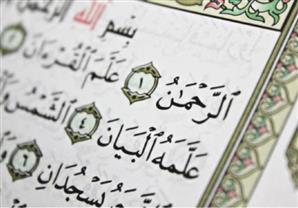 بِسْمِ اللَّهِ الرَّحْمَٰنِ
الرَّحْمَٰنُ ١ عَلَّمَ الْقُرْءَانَ ٢
عَلَّمَهُ الْبَيَانَ ٤ الشَّمْسُ
يَسْجُدَانِ ٦